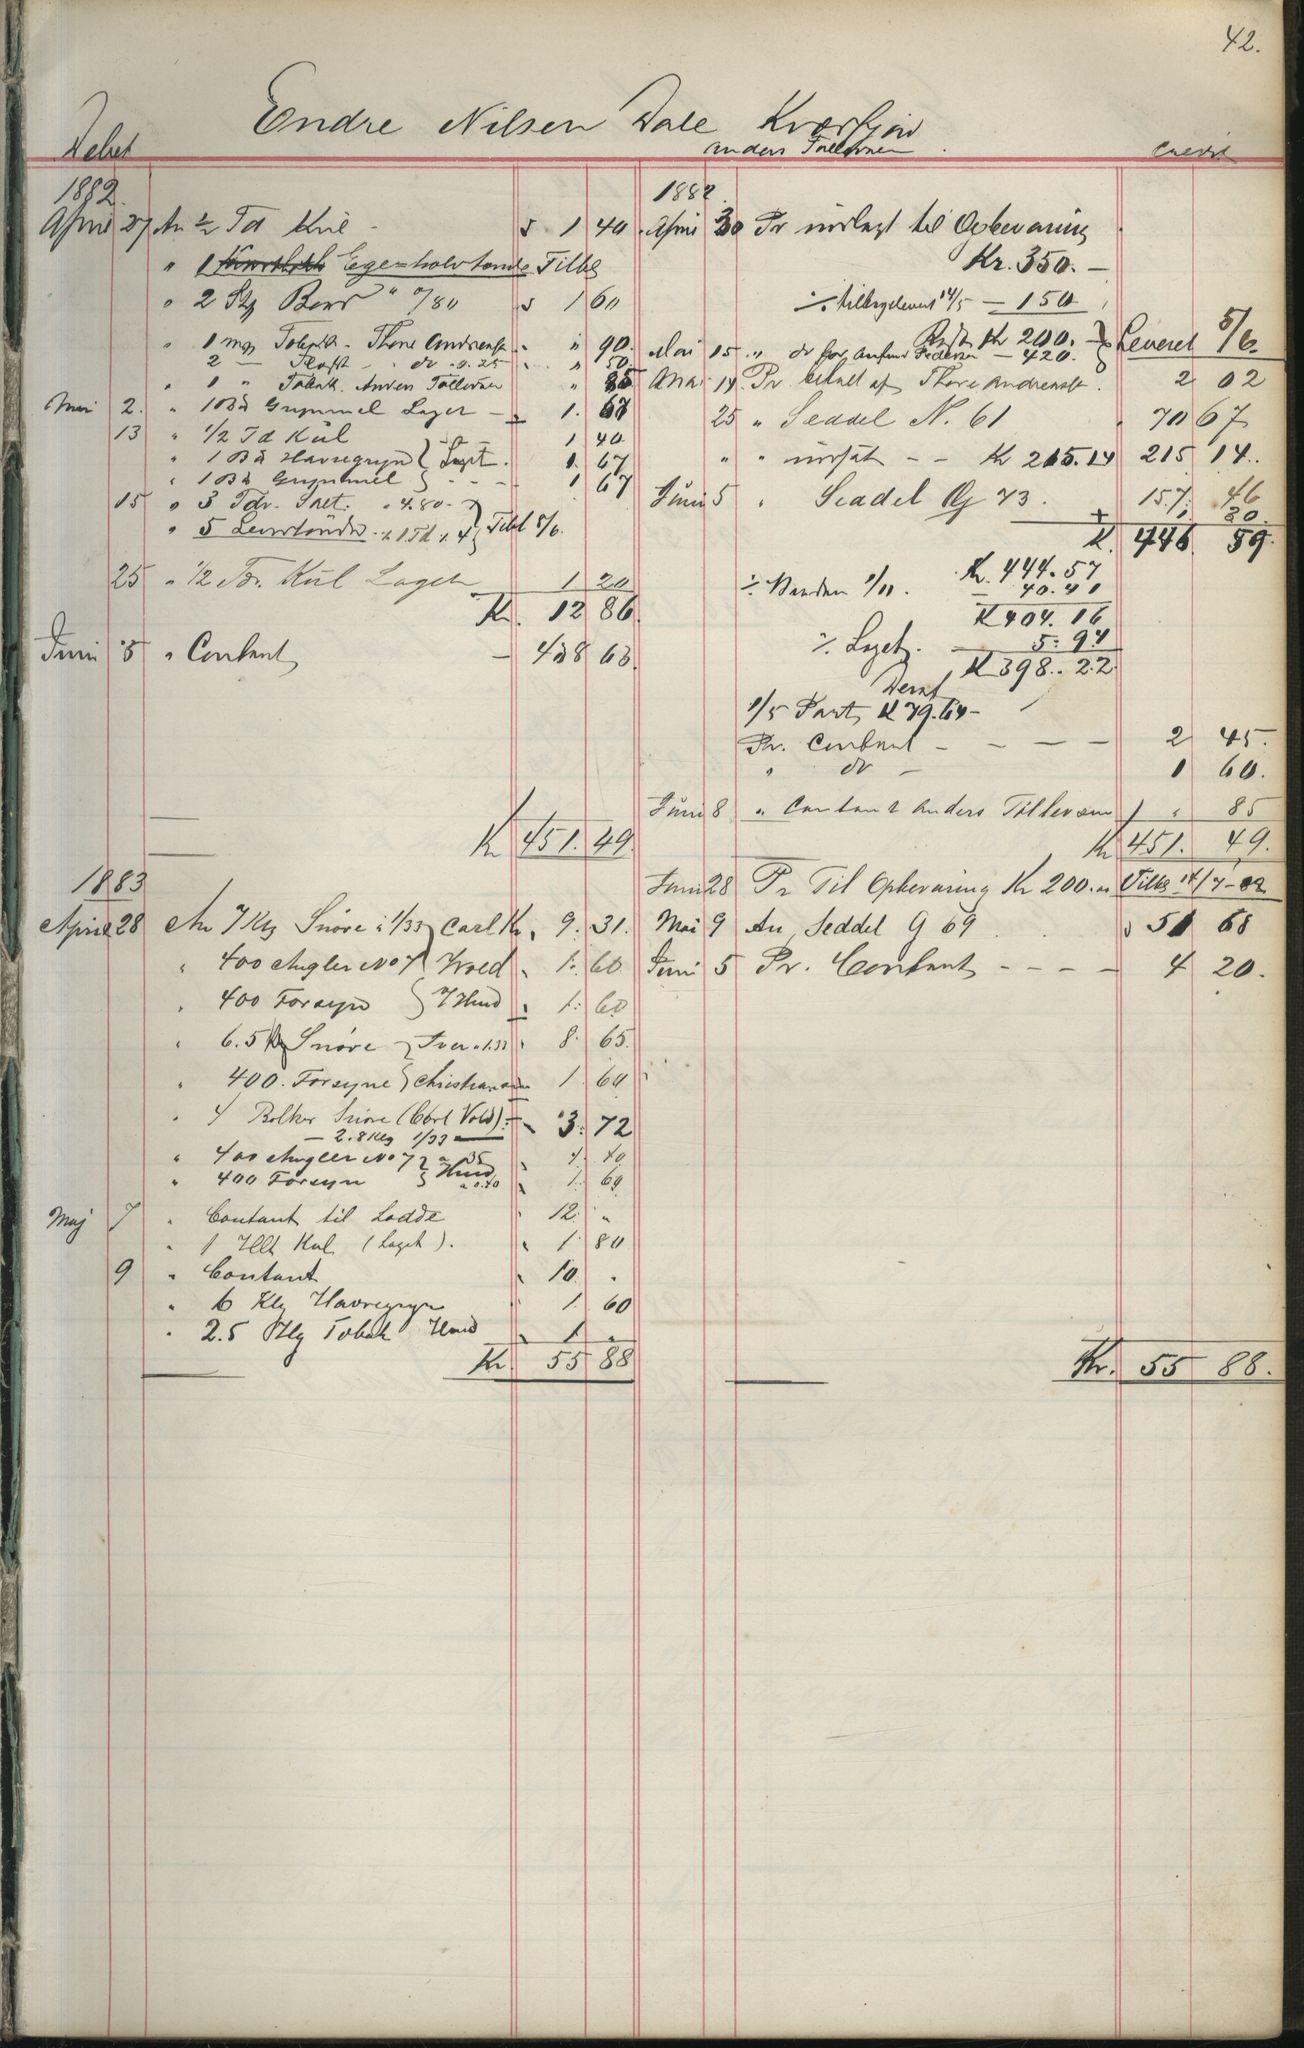 42.
Endre Nilsen Dale Kværfjord
Anders Tollevsen
Debet
Credit
1882.
April 27 An ½ Td Kul - " 1 40
" 1 Ege=halvtønde Tilbg
" 2 Stg " 0/80 " 1 60
" 1 Tobak - Thore Andreass. " 90.
2 — do - 0.25 " 50
" 1 " Tobak. Anders Tollevsen " 85
Mai 2. " 1 Bd Grynmel Laget - 1. 67
13 " 1/2 Td Kul 1 40
" 1 Bd Havregryn } Laget. 1. 67
" 1 Bd Grynmel } - - - 1 67
15 " 3 Tdr. Salt. " 4.80. } Tilbl 5/6.
" 5 Levertønder
25 " 1/2 Tdr. Kul Laget 1 20
Kr. 12 86.
Juni 5 " Contant — 438 63.
Kr 451. 49.
1882.
April 30 Pr indlagt til Opbevaring
Kr. 350. —
÷ tilbagelevert 14/5 — 150
Rest Kr 200. —
Mai 15 " do for Pedersen — 420. } Leveret 5/6.
Mai 14 Pr. betalt af Thore Andreass. 2 02
25 " Seddel N. 61 70 67
" " indsat - - Kr 215.14 215 14..
Juni 5 " Seddel 73. 157. 46
+ 1. 30.
K. 446. 59.
Kr. 444.57
÷ 1/11. — 40.41
K 404. 16
÷ Laget. — 5. 94
K 398.. 22.
Deraf
1/5 Part K 79.64 -
Pr. Contant - - — — 2 45.
" do — 1 60.
Juni 8 " Contant Anders Tollevsen " 85
Kr 451. 49.
Juni 28 Pr Til Opbevaring Kr 200. " Tilbg 14/7-82
1883
April 28 An 7 Kg Snøre à 1/33 } Carl Kr. 9. 31.
" 400 Angler No 7 } Wold " 1. 60
" 400 Forsyn } 7 Hund " 1. 60
" 6.5 Kg Snøre } Iver " 1.33 " 8. 65.
" 400. Forsyne } Christiansen 1. 60
" 4 Bolker Snøre (Carl Vold) - " 3. 72
— 2.8 Kg 1/33 —
" 400 Angler No 7 } a 35 " 1. 40
" 400 Forsyn } Hund a 0.40 " 1. 60
Maj 7 " Contant til Lodde " 12. "
" 1 Hlt Kul (Laget). " 1. 80
9 " Contant " 10. "
" 6 Kg Havregryn " 1. 60
" 2.5 Hg Tobak Hund " 1 "
Kr. 55 88
Mai 9 An Seddel G 69 " 51 68
Juni 5 Pr. Contant - - - - 4 20.
Kr. 55 88.